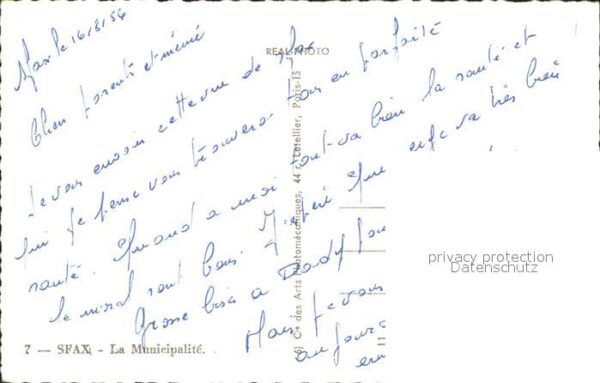 Sfax le 16/8/56
REAL PHOTO
Chers parents et mémé
Je vous envoie cette vue de Sfax
où je pense vous trouverez tous en parfaite
santé. Quand a moi tout va bien la santé et
le moral sont bons J'espère que va très bien
Grosse bise a Dady
Mais je vous
7 — SFAX - La Municipalité.
Cie des Arts Photomécaniques, 44 r. Letellier, Paris-15
privacy protection
Datenschutz